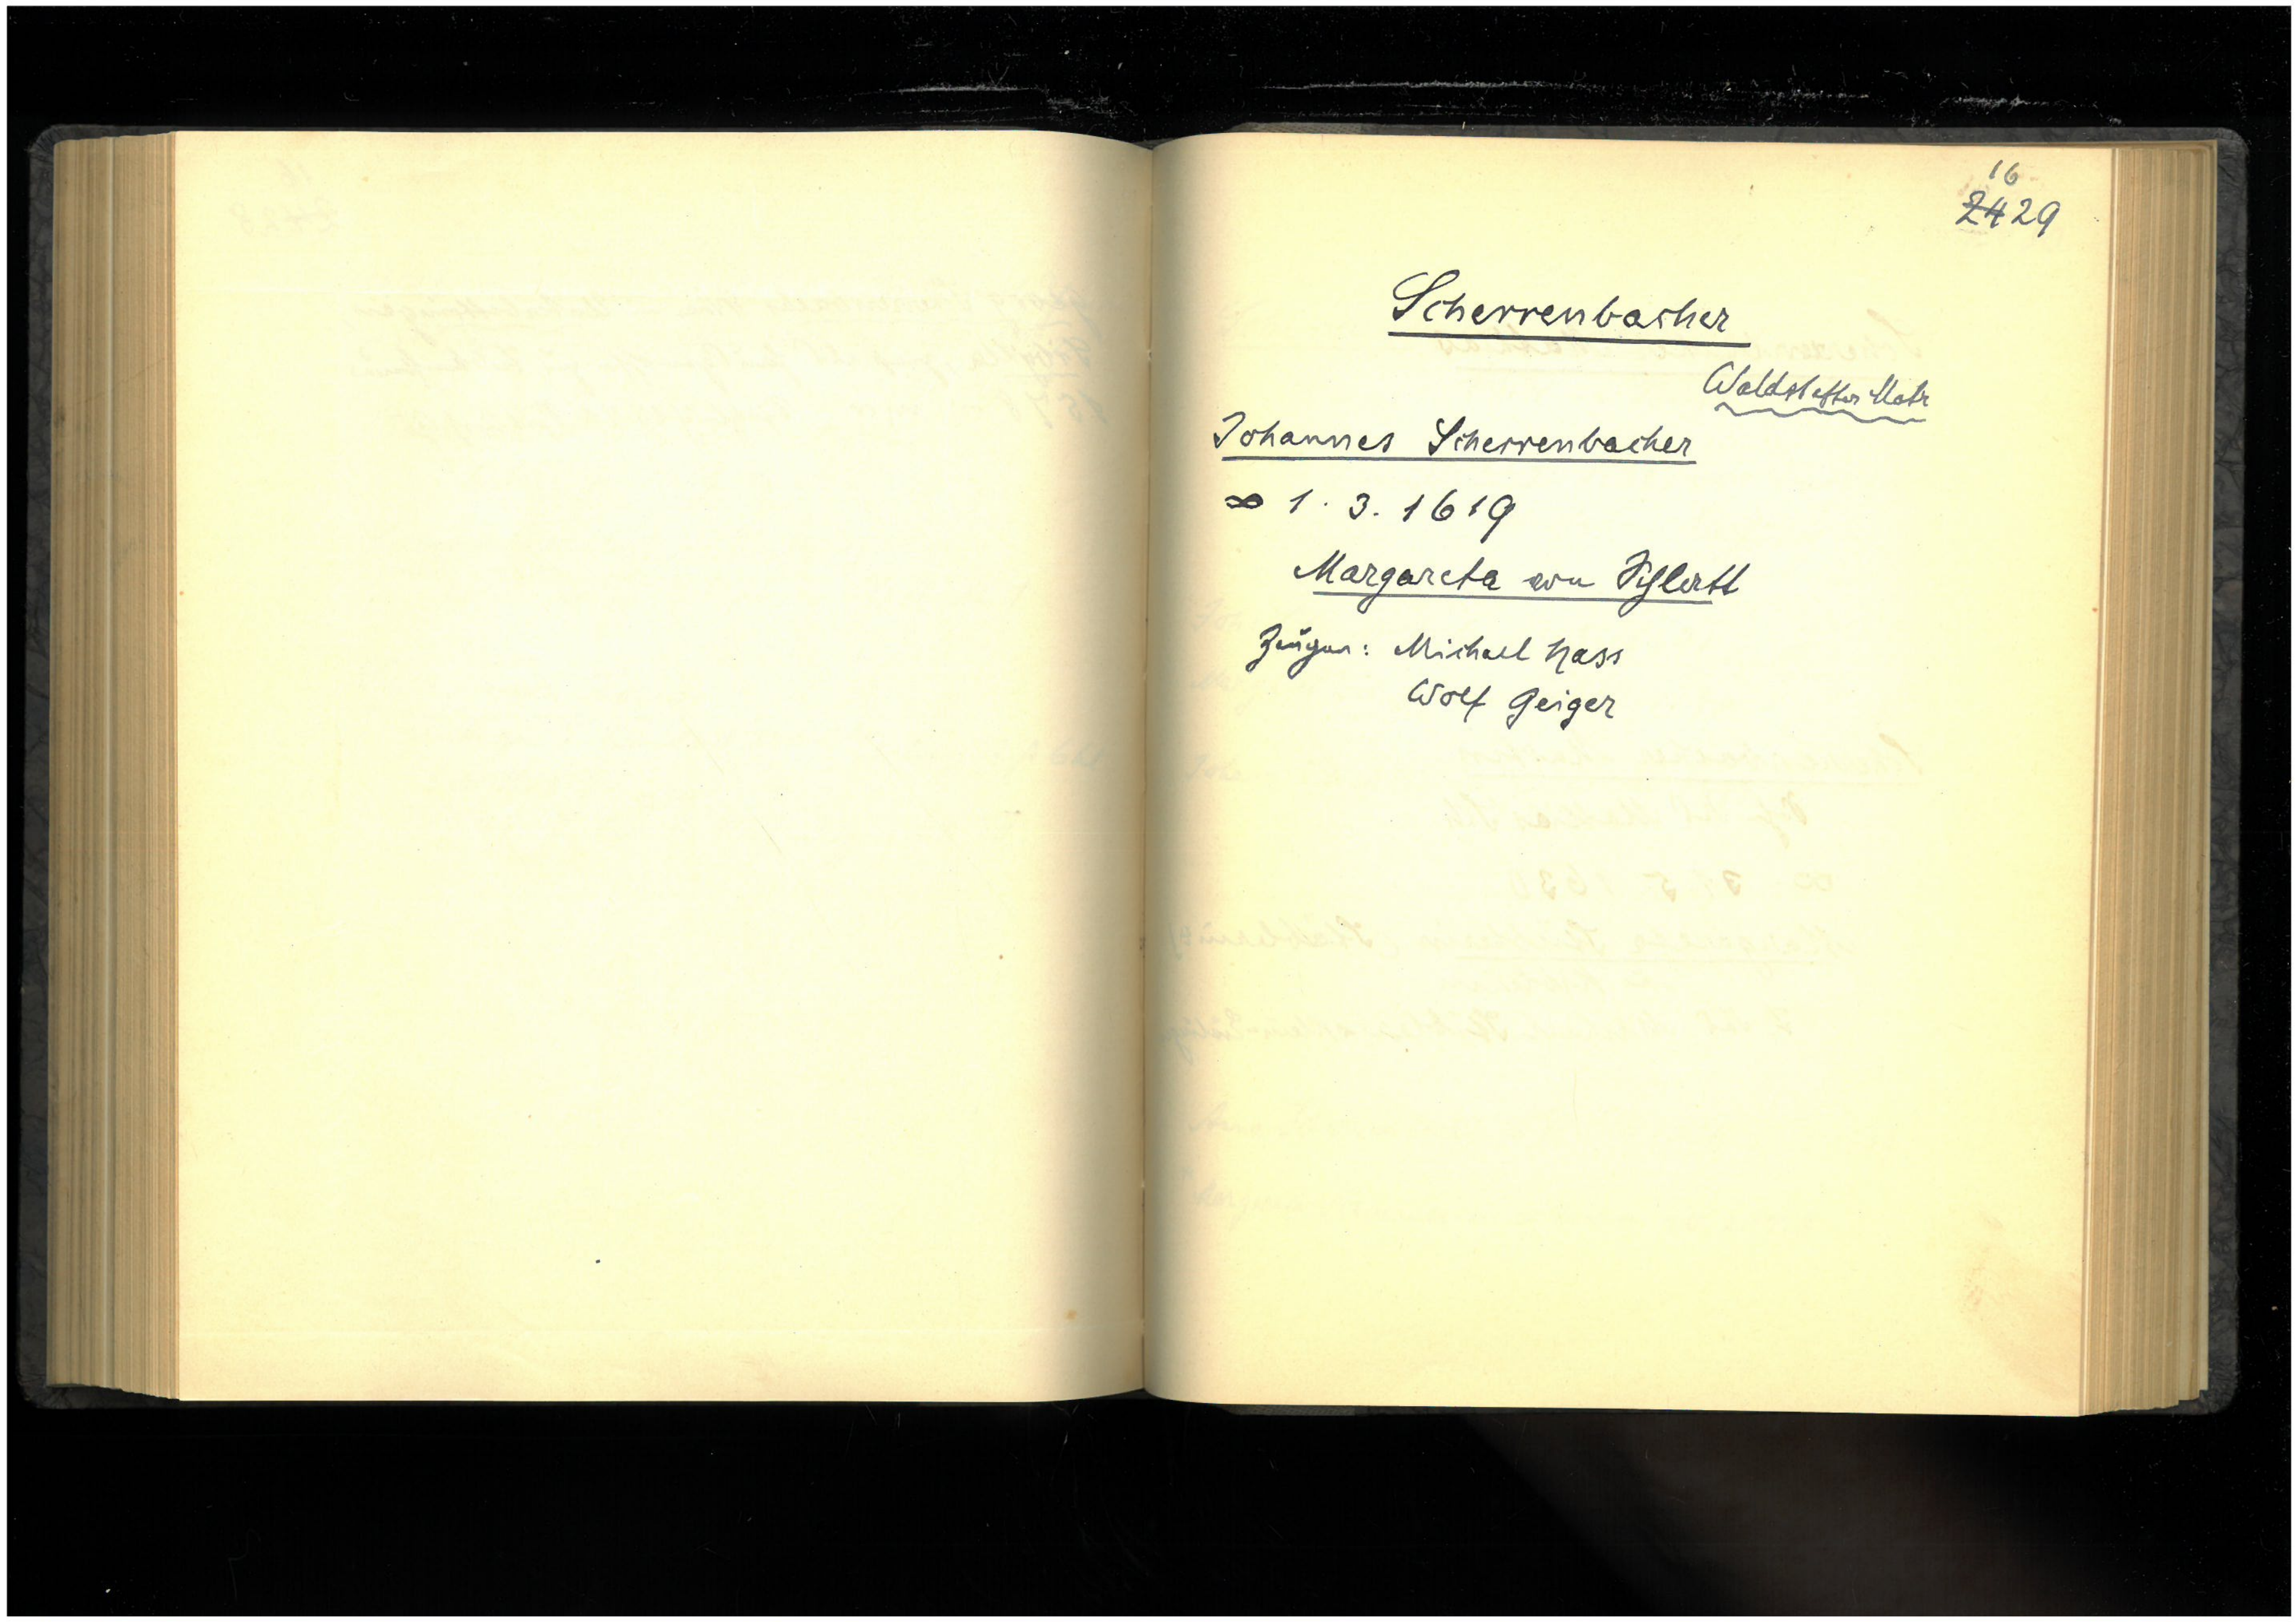 16
24 29
Scherrenbacher
Waldstetter Matr
Johannes Scherrenbacher
∞ 1. 3. 1619
Margareta von
Zeugen: Michael Hass
Wolf Geiger